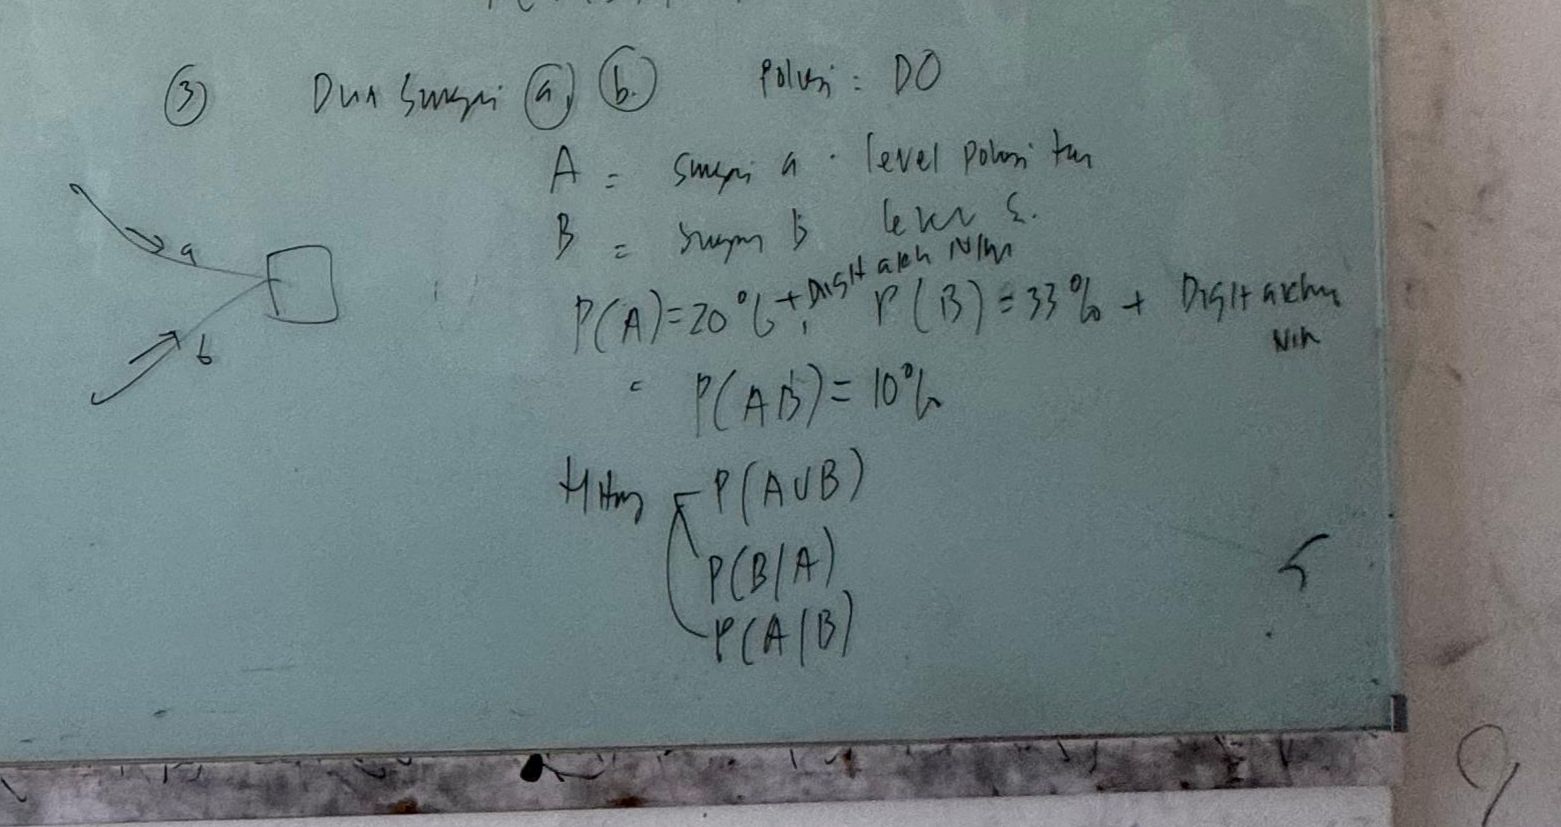 ③ Dua Sungai ⓐ, ⓑ. Polusi : DO
A = sungai a . level polusi
B = sungai b level
P(A)=20% + Digit akh Nim , P(B)=33% + Digit akhir Nim
P(AB)=10%
a
b
Hitung P(A∪B)
P(B/A)
P(A/B)